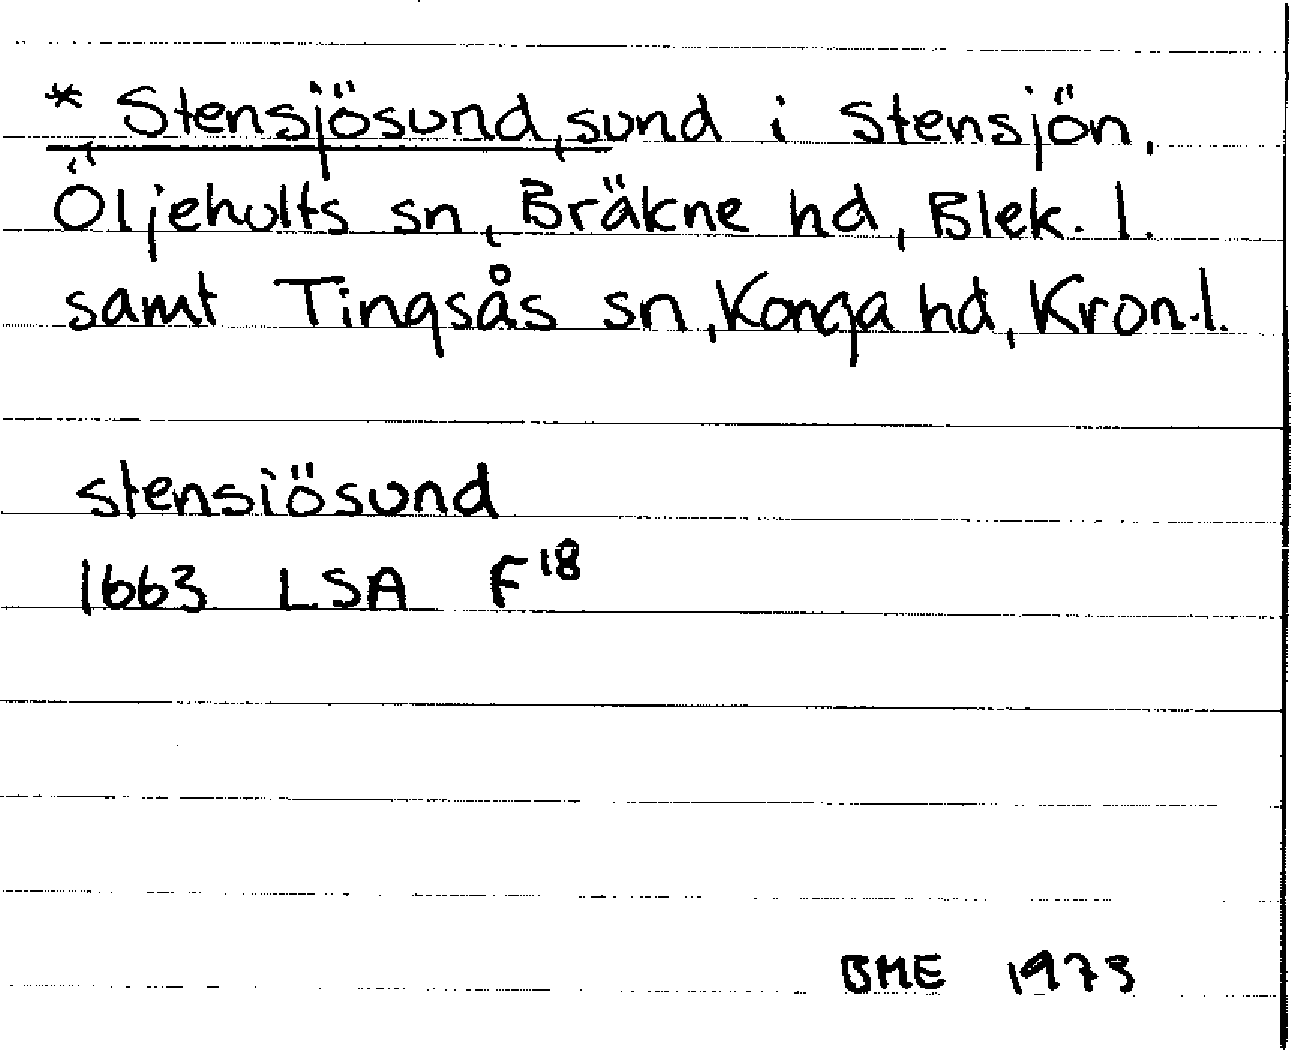 * Stensjösund, sund i Stensjön,
Öljehults sn, Bräkne hd, Blek. l.
samt Tingsås sn, Konga hd, Kron.l.
stensiösund
1663 LSA F18
BME 1973